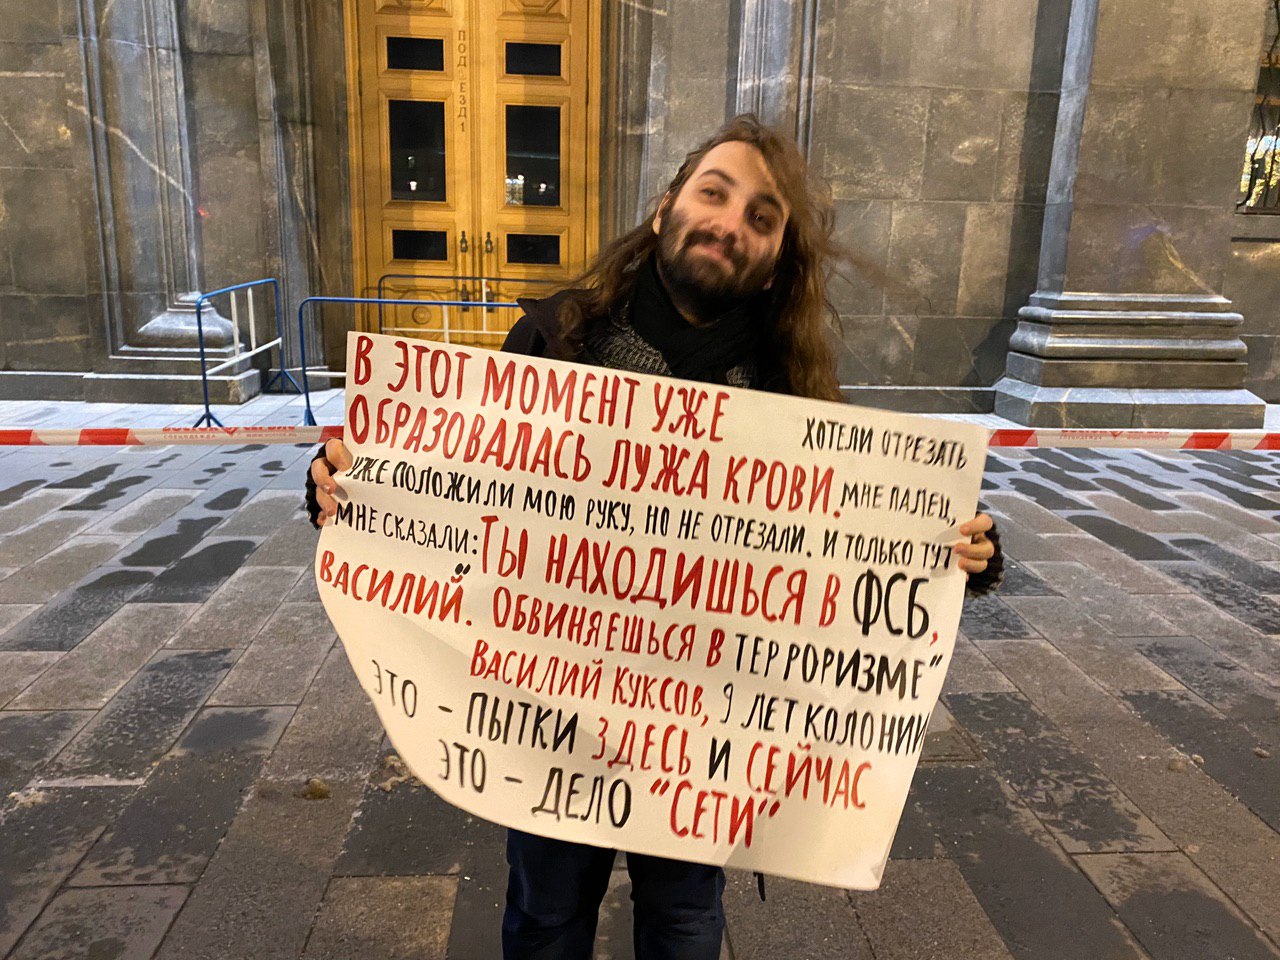 ПОДЪЕЗД 1
В ЭТОТ МОМЕНТ УЖЕ
ОБРАЗОВАЛАСЬ ЛУЖА КРОВИ. ХОТЕЛИ ОТРЕЗАТЬ
МНЕ ПАЛЕЦ,
УЖЕ ПОЛОЖИЛИ МОЮ РУКУ, НО НЕ ОТРЕЗАЛИ. И ТОЛЬКО ТУТ
МНЕ СКАЗАЛИ: "ТЫ НАХОДИШЬСЯ В ФСБ,
ВАСИЛИЙ. ОБВИНЯЕШЬСЯ В ТЕРРОРИЗМЕ"
ВАСИЛИЙ КУКСОВ, 9 ЛЕТ КОЛОНИИ
ЭТО – ПЫТКИ ЗДЕСЬ И СЕЙЧАС
ЭТО – ДЕЛО "СЕТИ"